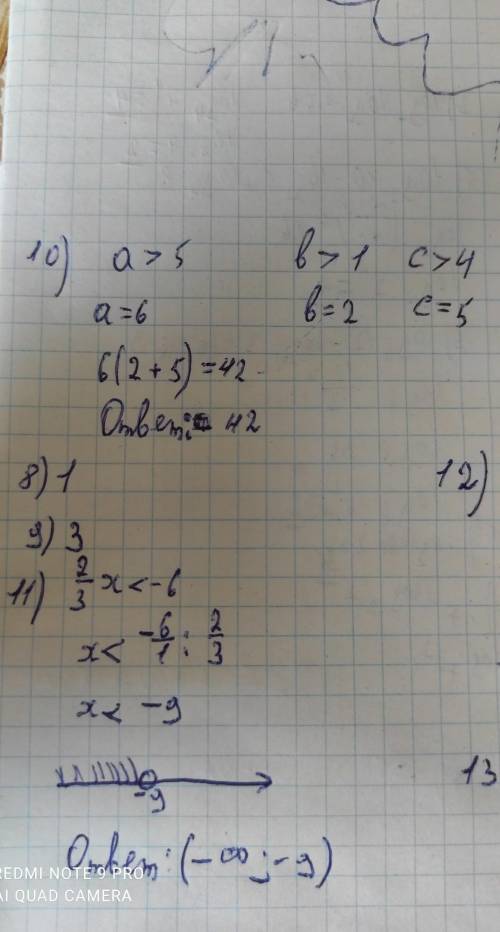 10) a > 5 b > 1 c > 4
a = 6 b = 2 c = 5
6(2 + 5) = 42
Ответ: 42
8) 1 12)
9) 3
11) 2/3 x < -6
x < -6/1 : 2/3
x < -9
-9 13
Ответ: (-∞; -9)
REDMI NOTE 9 PRO
AI QUAD CAMERA